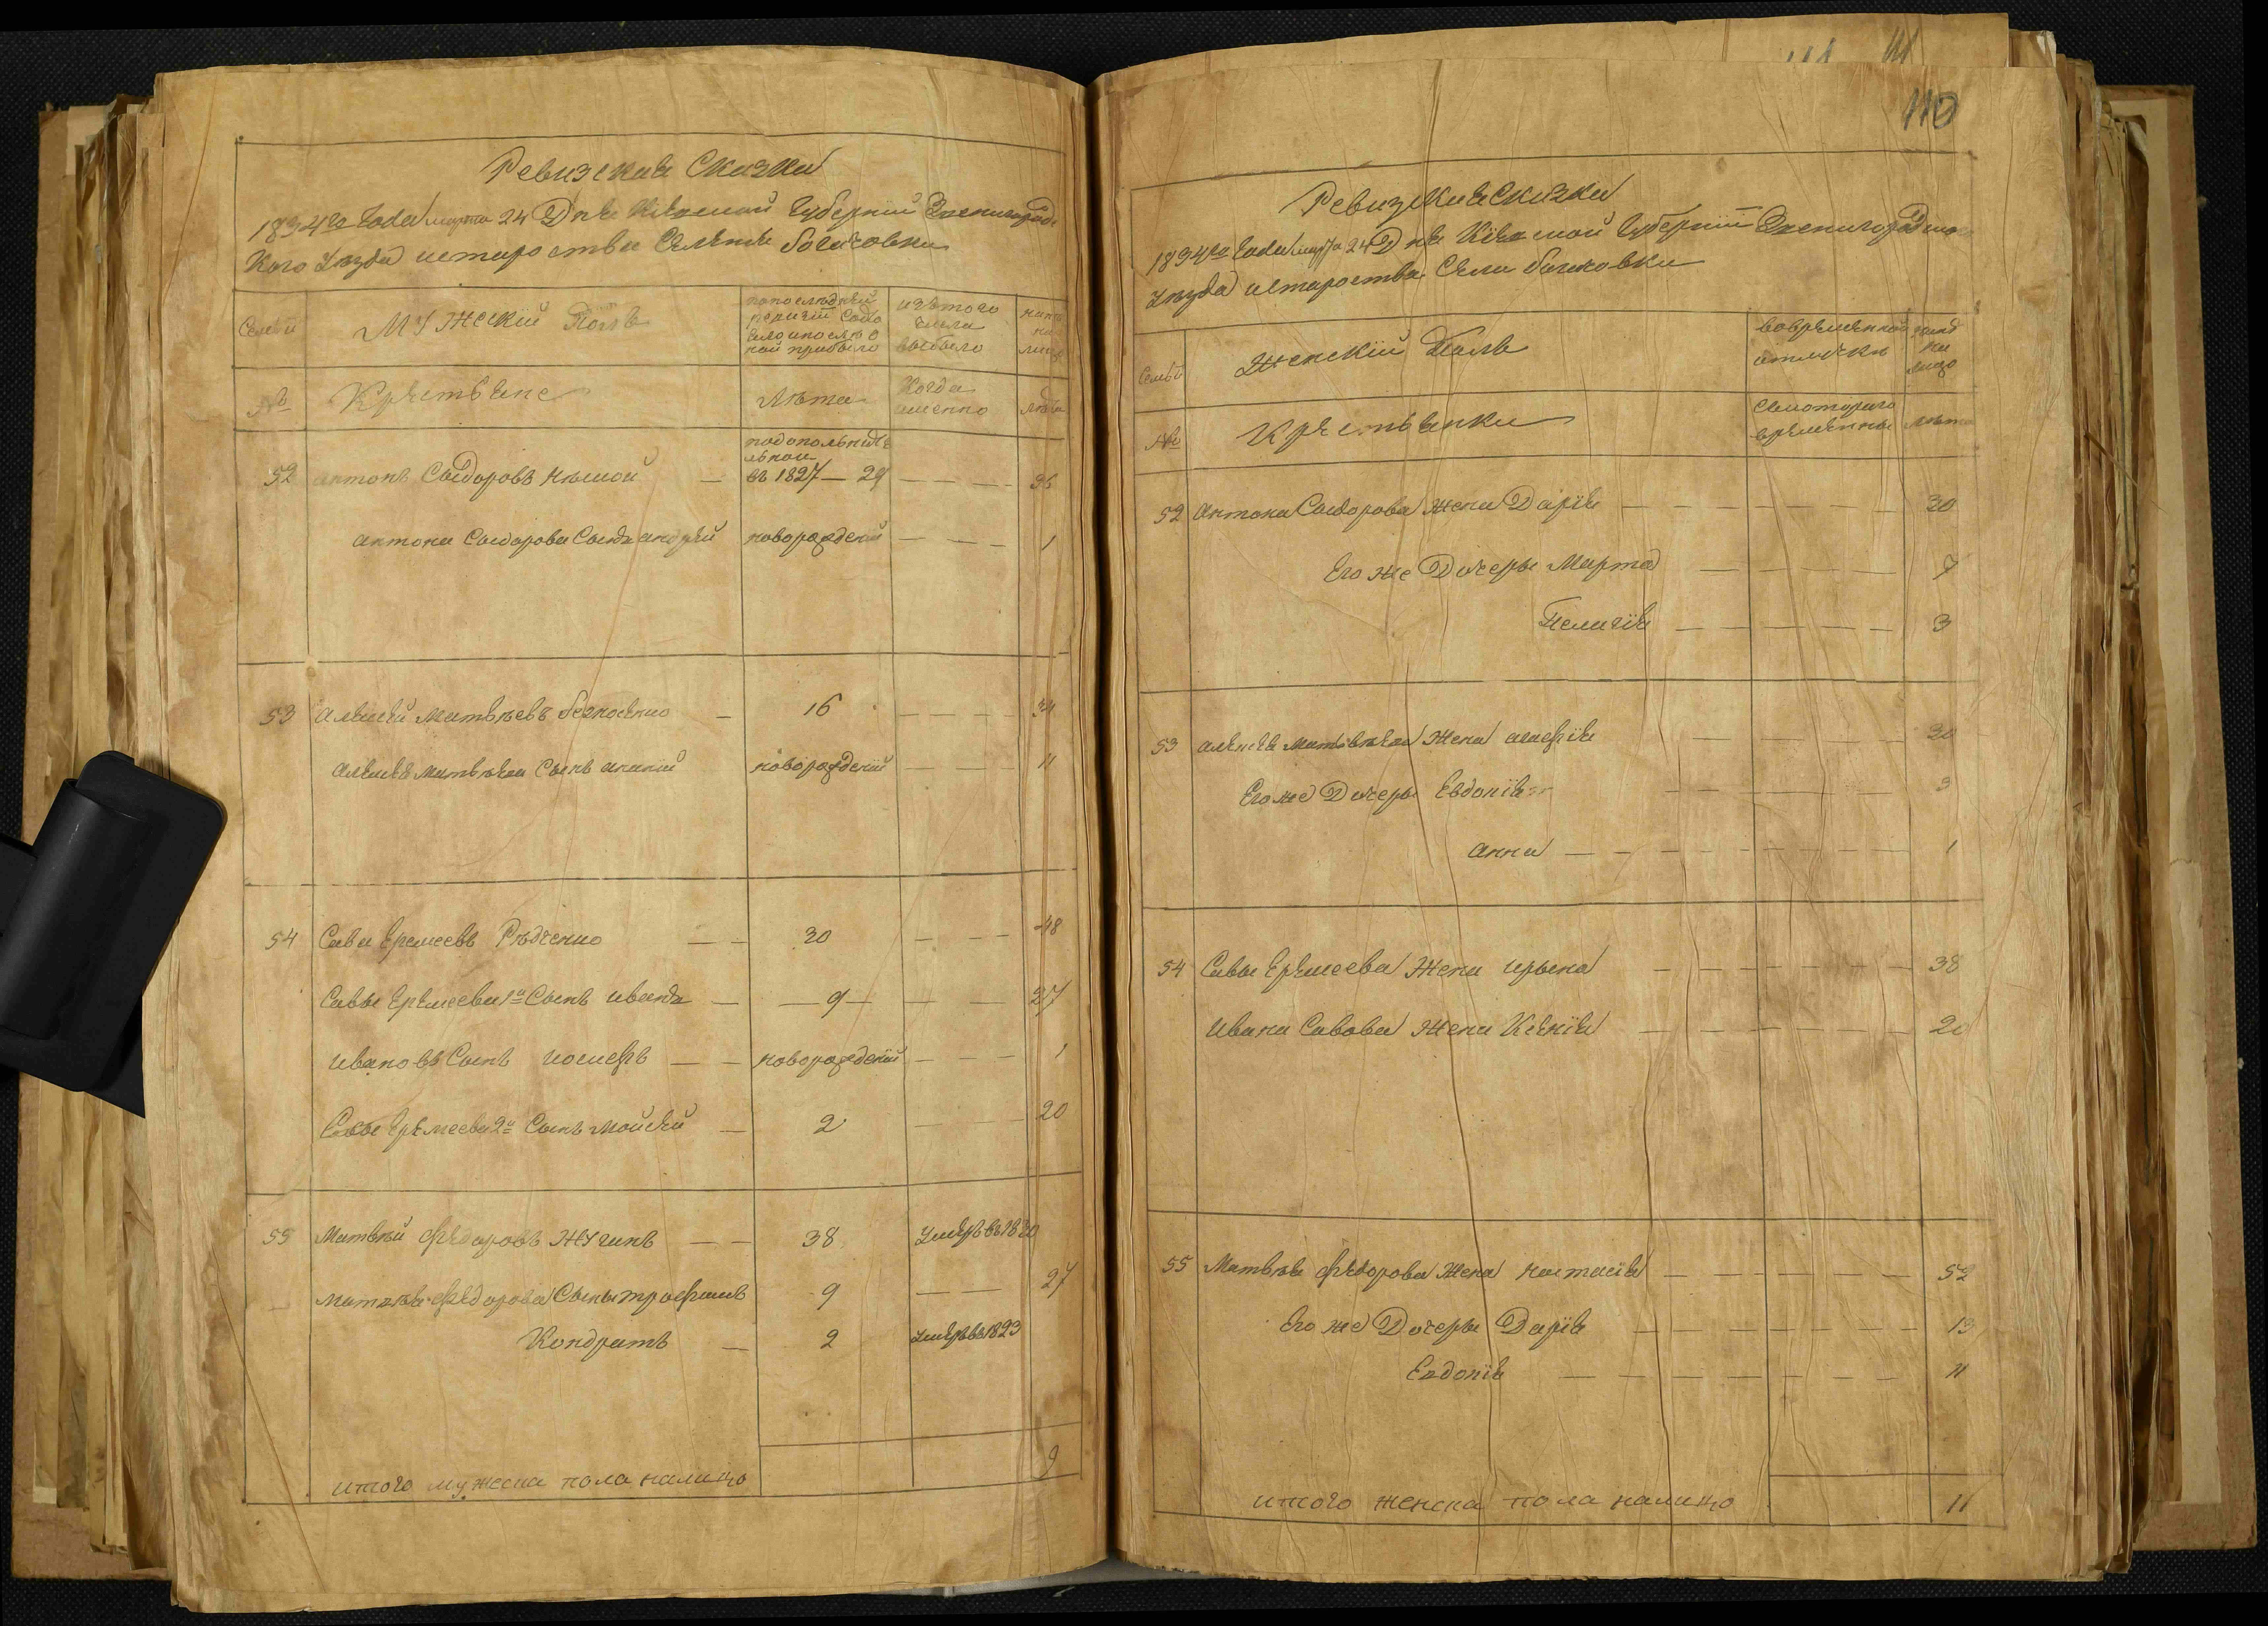 Ревизская Сказка
1834го Года марта 24 Дня Кіевской Губерніи Звенигородс
Кого Уезда староства Селенія
Семьи
Мужескій Полъ
по последней
ревизіи состо
яло и после о
ной прибыло
изъ того
числа
выбыло
ныне
на
лицо
№
Крестьяне
Лѣта
Когда
именно
Лѣта
по дополните
льной
52 антонъ Сыдоровъ Нѣмой — въ 1827 — 29 — — — 36
антона Сыдорова Сынъ андрей новорожденый — — — 1
53 алексей Матвѣевъ — 16 — — — 34
алексея Матвѣева Сынъ ананій новорожденій — — — 11
54 Сава Еремеевъ Рѣдченко — — 30 — — — 48
Савы Еремеева 1й Сынъ иванъ — — 9 — — — 27
ивановъ Сынъ иосифъ — — новорожденій — — — 1
Савы Еремеева 2й Сынъ Мойсей — 2 — 20
55 Матвѣй Федоровъ Жучинъ — — 38 умеръ въ 1830
— Матвѣя Федорова Сыны трофимъ 9 — — 27
Кондратъ — 2 умеръ въ 1823
9
итого мужеска пола налицо
111
110
Ревизская Сказка
1834го Года марта 24 Дня Кіевской Губерніи Звенигородско
Уезда староства Села
Семьи
Женскій Полъ
во временной
отлучкѣ
на
лицо
№
Крестьянки
Съ которого
времени
Лѣта
52 Антона Сыдорова Жена Дарія — — — — — — — 30
Его же Дочеры Марта — — — — — — 7
Пелагія — — — — — — 3
53 алексея Матвѣева Жена агафія — — — — — — 30
Его же Дочеры Евдокія — — — — — — 3
анна — — — — — — — — 1
54 Савы Еремеева Жена ирына — — — — — — — 38
Ивана Савова Жена Ксенія — — — — — — — 20
55 Матвѣя Федорова Жена настасія — — — — — — 52
Его же Дочеры Дарія — — — — — — 13
Евдокія — — — — — — — — 11
итого женска пола налицо 11